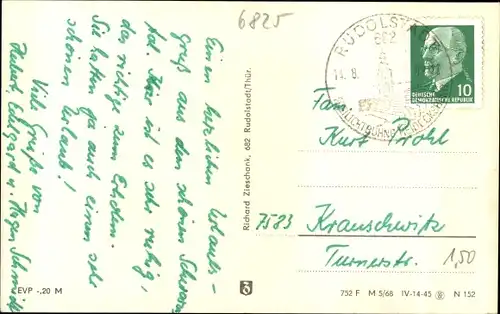 6825
Einen herzlichen Urlaubs-
gruß aus dem schönen Schwarza-
tal. Hier ist es sehr ruhig,
das richtige zum Erholen.
Sie hatten ja auch einen sehr
schönen Urlaub!
Viele Grüße von
Hubert, u. Schmidt
EVP -,20 M
Richard Zieschank, 682 Rudolstadt/Thür.
RUDOLSTADT
682
14.8.
DEUTSCHE
DEMOKRATISCHE REPUBLIK
10
Fam.
Kurt Prohl
7583 Krauschwitz
Turnerstr.
1,50
752 F M 5/68 IV-14-45 N 152